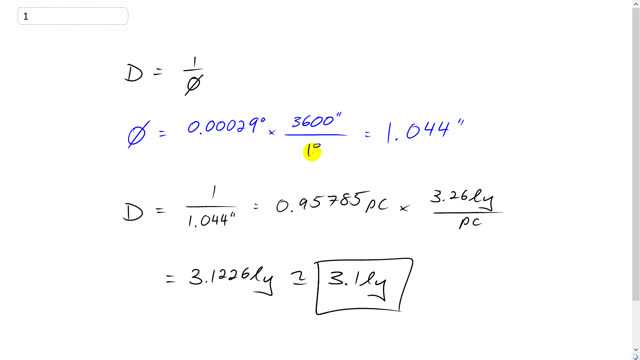 1
D = 1/∅
∅ = 0.00029° × 3600"/1° = 1.044"
D = 1/1.044" = 0.95785 pc × 3.26 ly/pc
= 3.1226 ly ≃ 3.1 ly